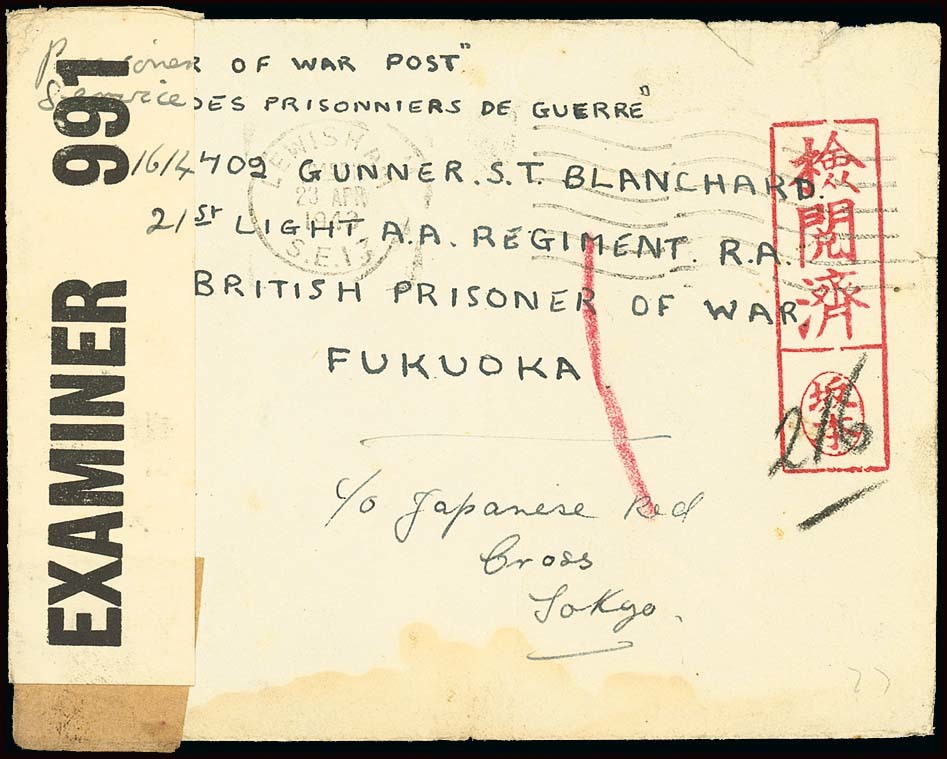 Prisoner OF WAR POST"
Service DES PRISONNIERS DE GUERRE"
16/4709 GUNNER. S.T. BLANCHARD.
21ST LIGHT A.A. REGIMENT. R.A.
BRITISH PRISONER OF WAR.
FUKUOKA
c/o Japanese Red
Cross
Tokyo.
EXAMINER 991
LEWISHAM
23 APR
S.E.13
検閲済
216